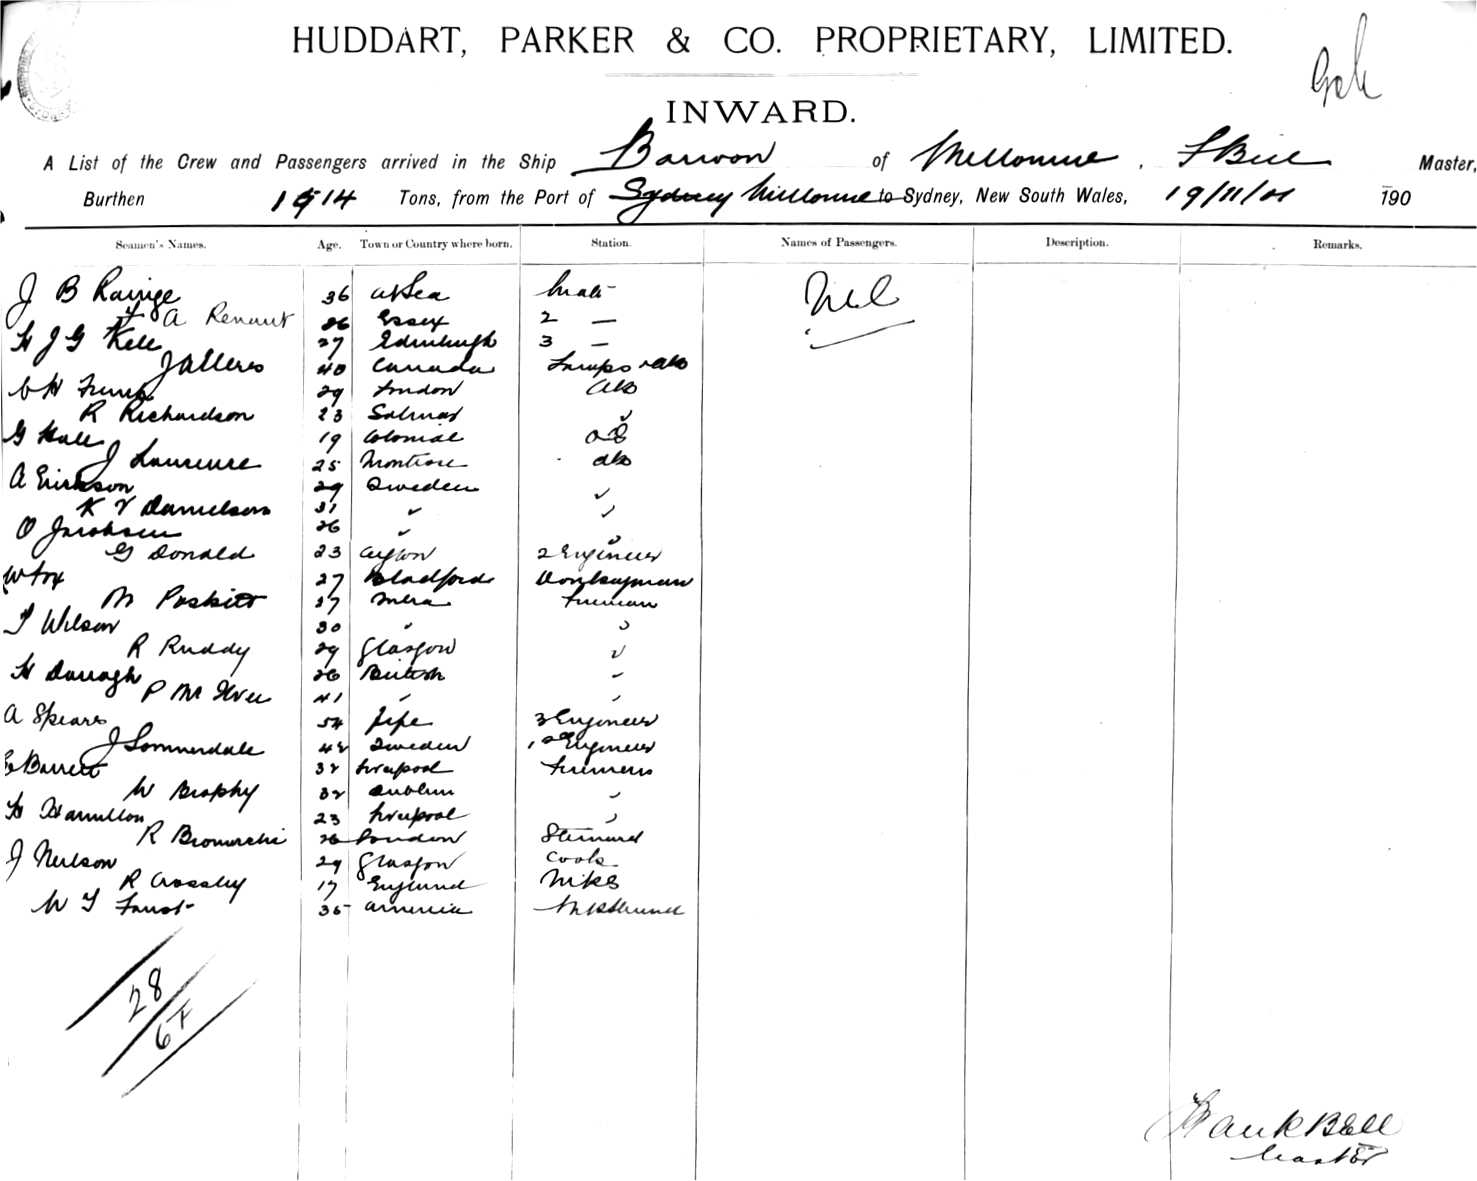 HUDDART, PARKER & CO. PROPRIETARY, LIMITED.
INWARD.
A List of the Crew and Passengers arrived in the Ship Barwon of Melbourne, F Bell Master,
Burthen 1514 Tons, from the Port of Sydney Melbourne to Sydney, New South Wales, 19/11/01 190
Seamen's Names. Age. Town or Country where born. Station. Names of Passengers. Description. Remarks.
J B Rainge 36 at Sea Mate Nil
A Renaut 26 Essex 2 —
H J G Kell 27 Edinburgh 3 —
J Allers 40 Canada Lamps & AB
C H 29 London AB
R Richardson 23 "
G Hall 19 Colonial OS
J Laurence 25 Montrose AB
A Erickson 29 Sweden "
K V Danielson 31 " "
O Jacobsen 26 " "
G Donald 23 Ceylon 2 Engineer
W Fox 27 Bradford Donkeyman
M Poskitt 37 Fireman
T Wilson 30 " "
R Ruddy 29 Glasgow "
H Darragh 26 British "
P McIlvee 41 " "
A Spears 54 Fife 3 Engineer
J Sommerdale 42 Sweden 1st Engineer
E Barrett 32 Liverpool Firemen
W Brophy 32 Dublin "
H Hamilton 23 Liverpool "
R 26 London Steward
J Neilson 29 Glasgow Cook
R Crossley 17 England
W T Faust 35 America
28
67
Frank Bell
Master